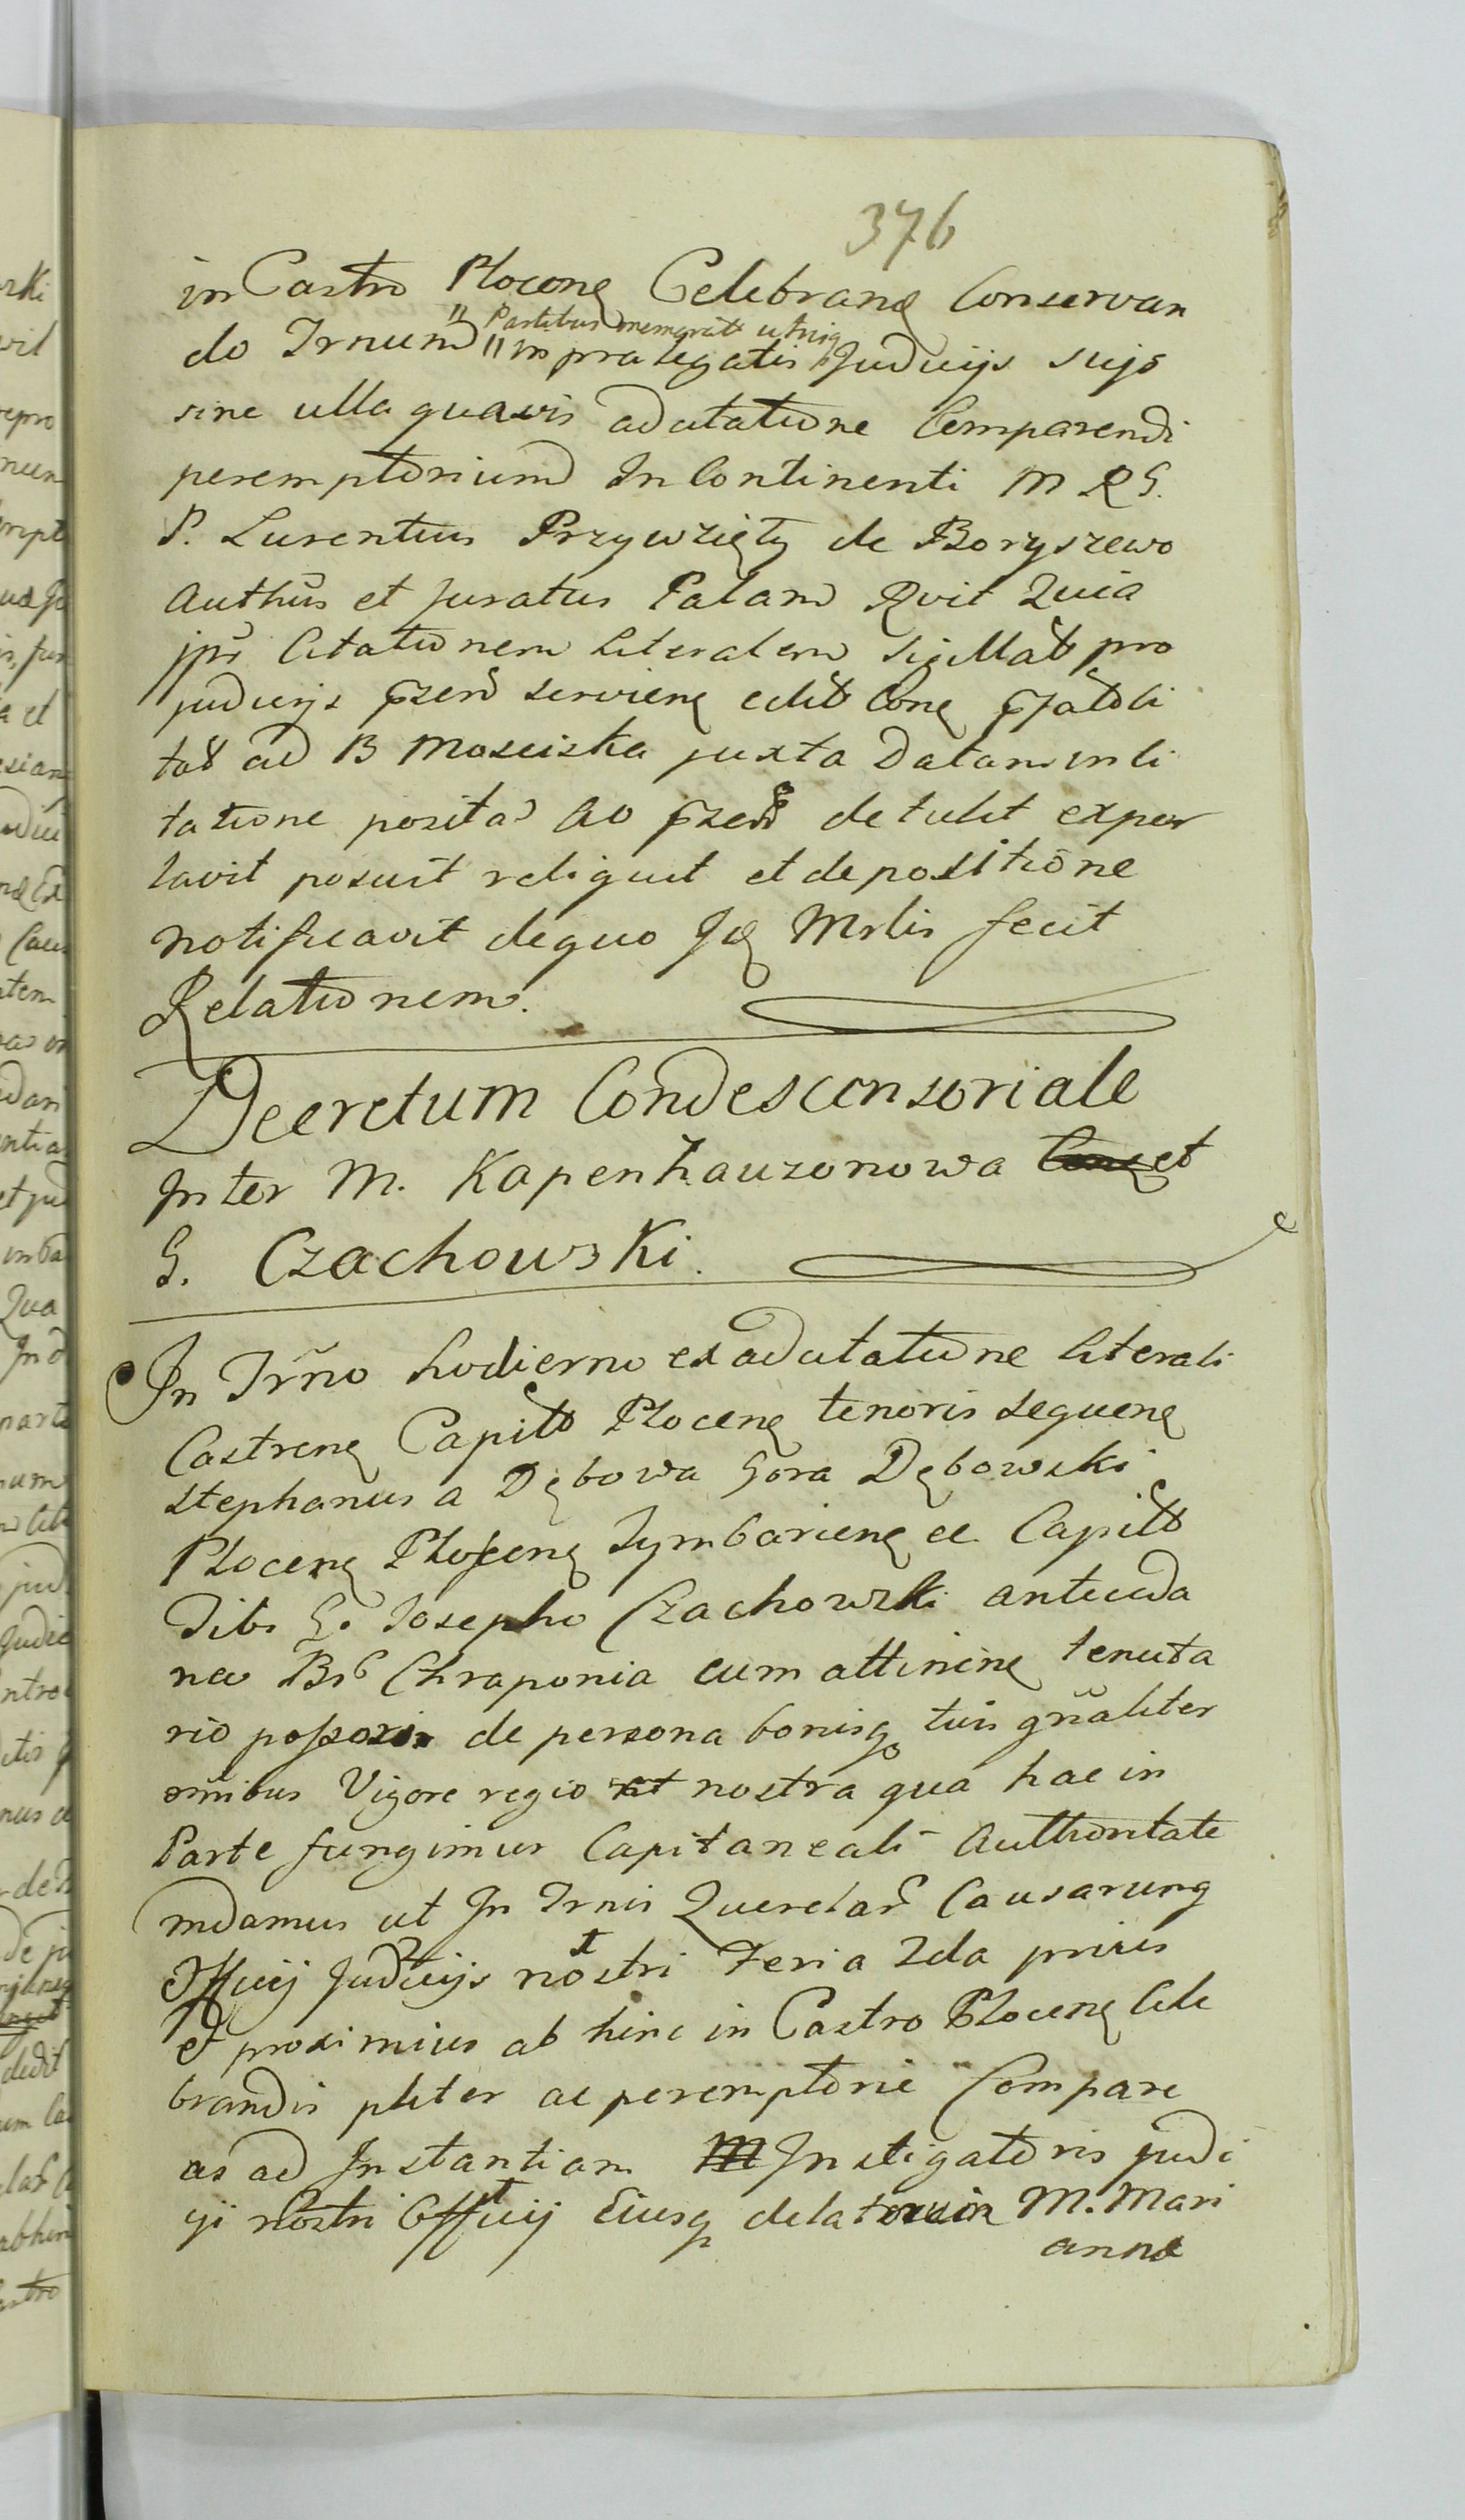 376
in Castro Plocenę Celebranę Conservan
do Trnum " Partibus memorat utriq
" in pralegatis Judicijs sujs
sine ulla quavis adcitatione Comparendi
peremptorium In Continenti M R G.
P. Lurentius Przywzięty de Boryszewo
Authūs et Juratus Palam Rvit Quia
jps Citationem Literalem Sigillat pro
judicijs servienę edit Conę
tat ad B Mosciska juxta Datam in Ci
tatione posita ao detulit expor
tavit posuit reliquit et depositione
notificavit dequo Jd Mrlis fecit
Relationem.
Decretum Condescensoriale
Inter M. Kapenhauzonowa et
G. Czachowski.
In Trño hodierno ex adcitatione literali
Castrenę Capitt Plocenę tenoris sequenę
Stephanus a Dębowa Gora Dębowski
Plocenę Plocenę Zymbarienę ee Capitt
Tibi G. Josepho Czachowski anteceda
neo Brb Chraponia cum attinenę tenuta
rio possori de persona bonisq tuis gñaliter
omñibus Vigore regio et nostra qua hac in
Parte fungimur Capitaneali Authoritate
mdamus ut In Trnis Querelar Causarunq
Officij Judicijs nostri Feria 2da prius
et proximius ab hinc in Castro Plocenę Cele
brandis pliter ac peremptorie Compare
as ad Instantiam M Instigatoris judi
cij nostri Officij Eiusq delatorum M. Mari
annæ